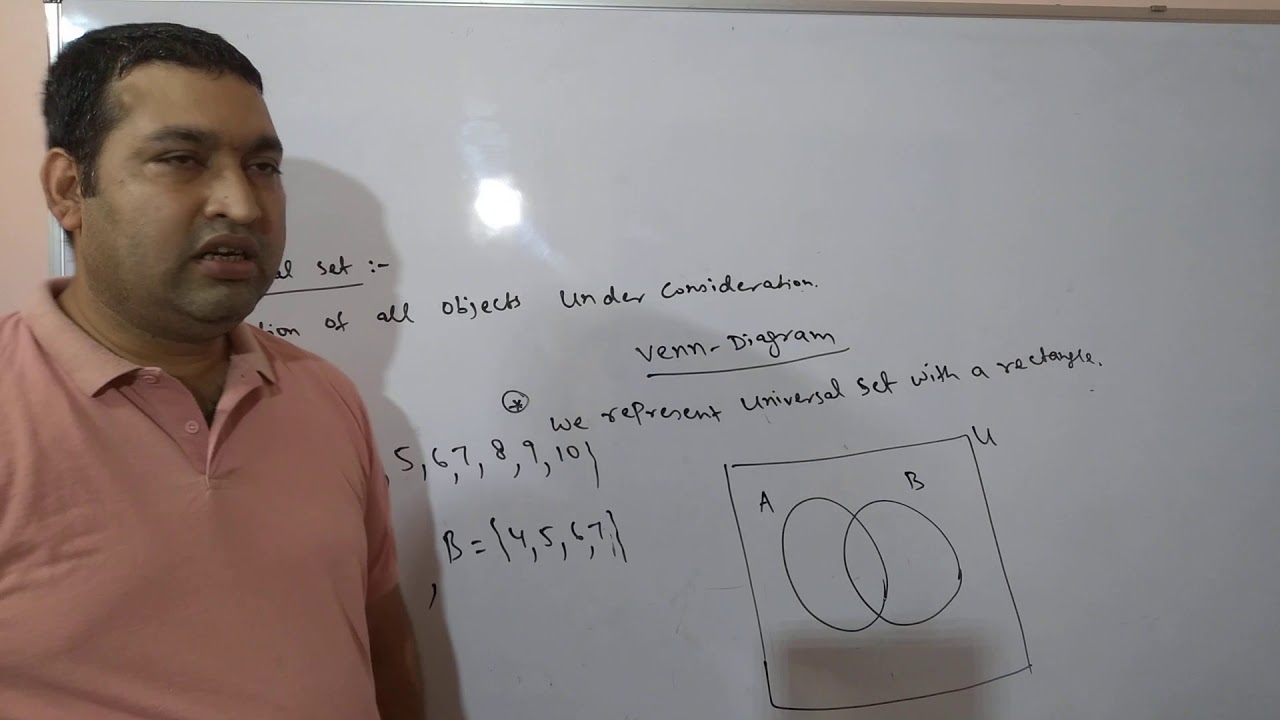 set :-
of all objects under consideration.
Venn-Diagram
* we represent universal set with a rectangle.
, 5, 6, 7, 8, 9, 10}
, B = {4, 5, 6, 7}
U
A
B